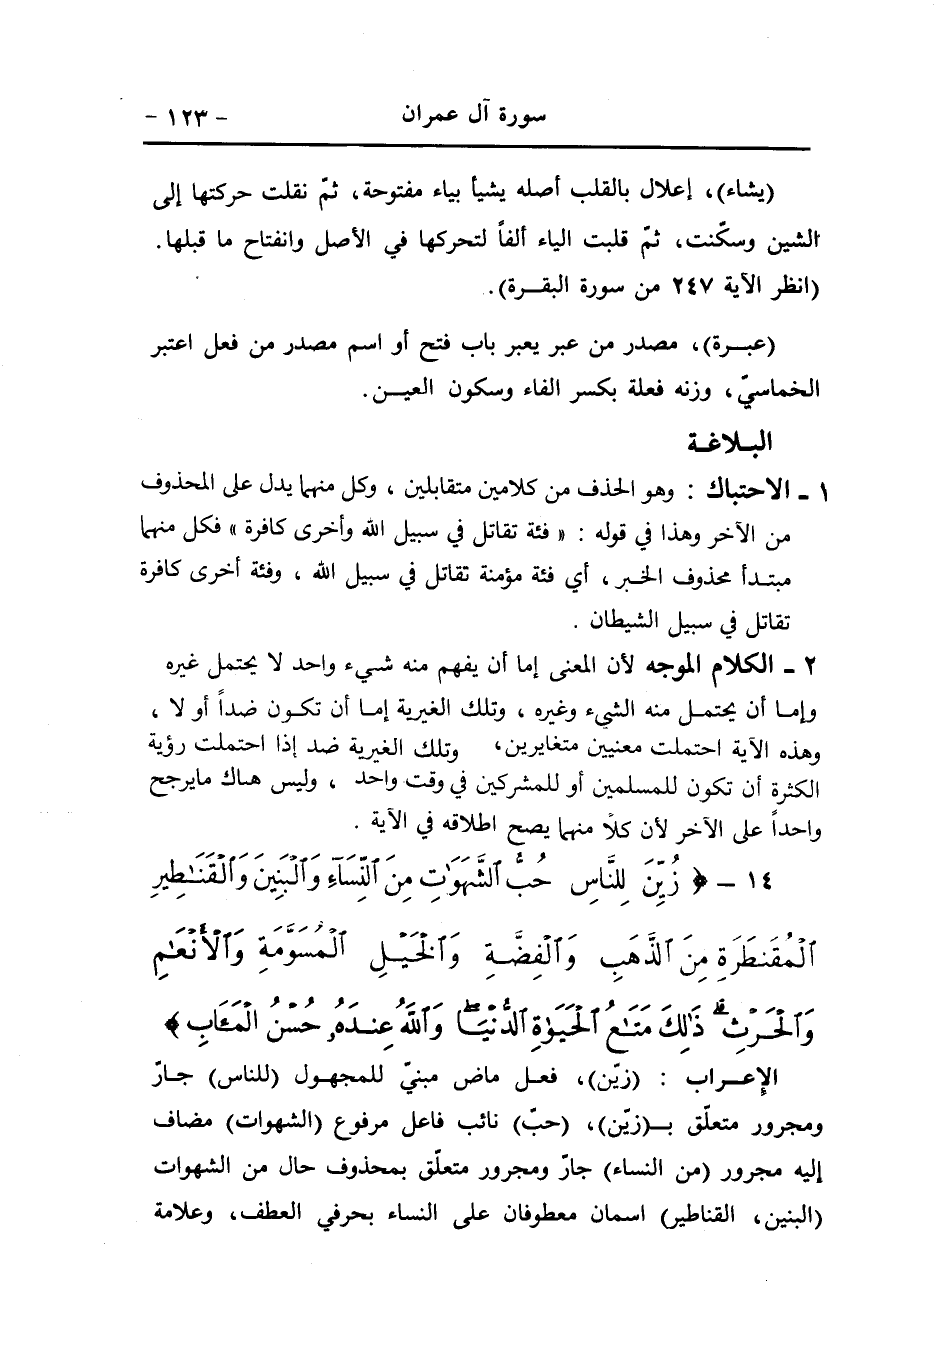 سورة آل عمران - ١٢٣ -
(يشاء)، إعلال بالقلب أصله يشيأ بياء مفتوحة، ثمّ نقلت حركتها إلى
الشين وسكّنت، ثمّ قلبت الياء ألفاً لتحركها في الأصل وانفتاح ما قبلها.
(انظر الآية ٢٤٧ من سورة البقـرة).
(عبـرة)، مصدر من عبر يعبر باب فتح أو اسم مصدر من فعل اعتبر
الخماسيّ، وزنه فعلة بكسر الفاء وسكون العيـن.
البـلاغـة
١ ـ الاحتباك : وهو الحذف من كلامين متقابلين ، وكل منهما يدل على المحذوف
من الآخر وهذا في قوله : « فئة تقاتل في سبيل الله وأخرى كافرة » فكل منهما
مبتـدأ محذوف الخـبر ، أي فئة مؤمنة تقاتل في سبيل الله ، وفئة أخرى كافرة
تقاتل في سبيل الشيطان .
٢ ـ الكلام الموجه لأن المعنى إما أن يفهم منه شيء واحد لا يحتمل غيره
وإمـا أن يحتمـل منه الشيء وغيره ، وتلك الغيرية إمـا أن تكـون ضداً أو لا ،
وهذه الآية احتملت معنيين متغايرين، وتلك الغيرية ضد إذا احتملت رؤية
الكثرة أن تكون للمسلمين أو للمشركين في وقت واحد ، وليس هناك مايرجح
واحداً على الآخر لأن كلًا منهما يصح اطلاقه في الآية .
١٤ ـ ﴿ زُيِّنَ لِلنَّاسِ حُبُّ ٱلشَّهَوَٰتِ مِنَ ٱلنِّسَآءِ وَٱلْبَنِينَ وَٱلْقَنَٰطِيرِ
ٱلْمُقَنطَرَةِ مِنَ ٱلذَّهَبِ وَٱلْفِضَّةِ وَٱلْخَيْلِ ٱلْمُسَوَّمَةِ وَٱلْأَنْعَٰمِ
وَٱلْحَرْثِ ۗ ذَٰلِكَ مَتَٰعُ ٱلْحَيَوٰةِ ٱلدُّنْيَا ۖ وَٱللَّهُ عِندَهُۥ حُسْنُ ٱلْمَـَٔابِ ﴾
الإعـراب : (زيّن)، فعـل ماض مبنيّ للمجهـول (للناس) جـارّ
ومجرور متعلّق بـ(زيّن)، (حبّ) نائب فاعل مرفوع (الشهوات) مضاف
إليه مجرور (من النساء) جارّ ومجرور متعلّق بمحذوف حال من الشهوات
(البنين، القناطير) اسمان معطوفان على النساء بحرفي العطف، وعلامة